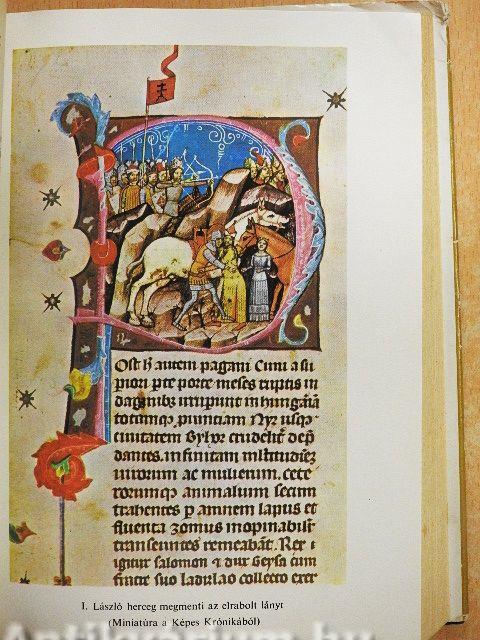 Ost h autem pagani Cuni a su
piori parte porte meses ruptis in
daginibus irrupunt in hungariā
totamque provinciam Nyr usque
civitatem Byhor crudelit depre
dantes. infinitam multitudinē
virorum ac mulierum. cete
rorumque animalium secum
trahentes per amnem lapus et
fluenta zomus inopinabilit
transeuntes remeabāt. Rex i
gitur salomon et dux Geysa cum
fratre suo ladizlao collecto exer
I. László herceg megmenti az elrabolt lányt
(Miniatúra a Képes Krónikából)